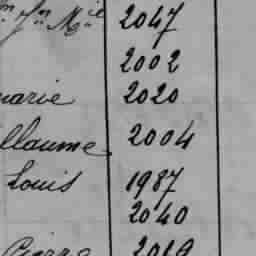 Jn Mie 2047
2002
marie 2020
llaume 2004
Louis 1987
2040
Pierre 2019